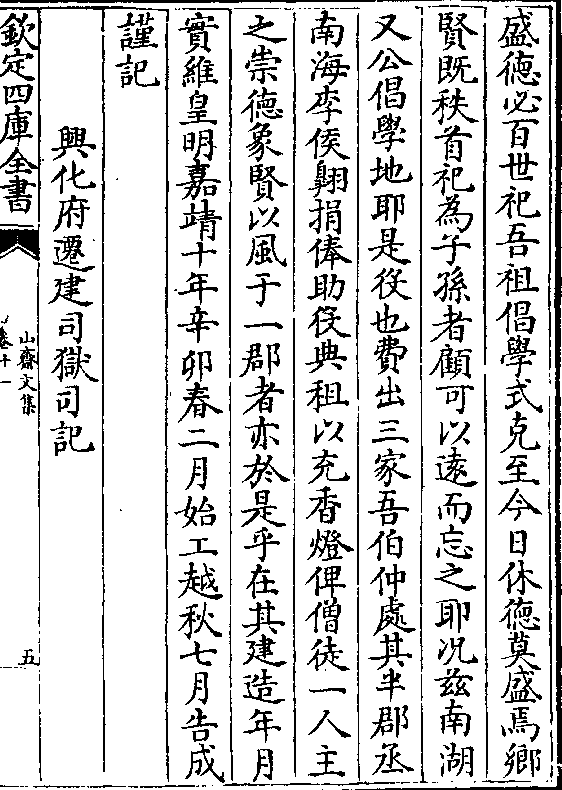 盛德必百世祀吾祖倡學式克至今日休德莫盛焉鄉
賢既秩首祀為子孫者顧可以遠而忘之耶况兹南湖
又公倡學地耶是役也費出三家吾伯仲處其半郡丞
南海李侯翺捐俸助役典租以充香燈俾僧徒一人主
之崇德象賢以風于一郡者亦於是乎在其建造年月
實維皇明嘉靖十年辛卯春二月始工越秋七月告成
謹記
興化府遷建司獄司記
欽定四庫全書
山齋文集
卷十一
五